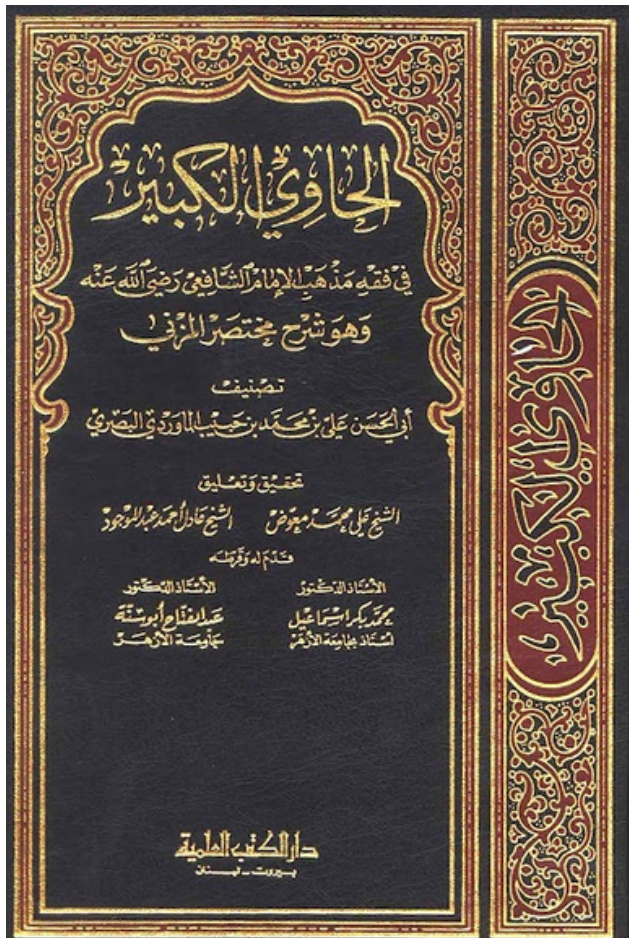 الحاوي الكبير
في فقه مذهب الإمام الشافعي رضي الله عنه
وهو شرح مختصر المزني
تصنيف
أبي الحسن علي بن محمد بن حبيب الماوردي البصري
تحقيق وتعليق
الشيخ علي محمد معوض الشيخ عادل أحمد عبد الموجود
قدم له وقرظه
الأستاذ الدكتور الأستاذ الدكتور
محمد بكر إسماعيل عبد الفتاح أبو سنة
أستاذ بجامعة الأزهر جامعة الأزهر
دار الكتب العلمية
بيروت - لبنان
الحاوي الكبير